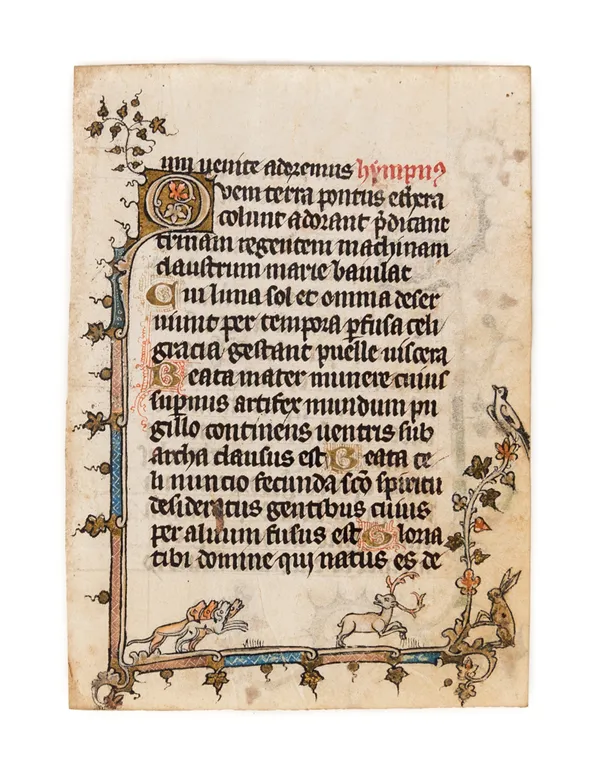 um uenite adoremus hympnꝰ
Quem terra pontus ethera
colunt adorant p̄dicant
trinam regentem machinam
claustrum marie baiulat
Cui luna sol et omnia deser
uiunt per tempora ꝑfusa celi
gracia gestant puelle uiscera
Beata mater munere cuius
sup̄nus artifex mundum pu
gillo continens uentris sub
archa clausus est Beata ce
li nuncio fecunda sc̄o spiritu
desideratus gentibus cuius
per aluum fusus est Gloria
tibi domine qui natus es de